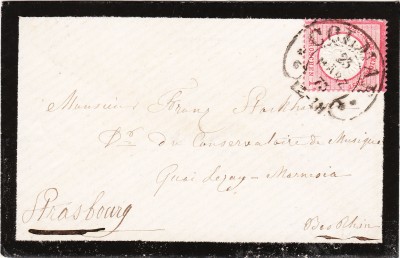 COLMAR
25
Monsieur Franz Stockhausen
Dr du Conservatoire de Musique
Quai Lezay-Marnesia
Strasbourg
Bas Rhin